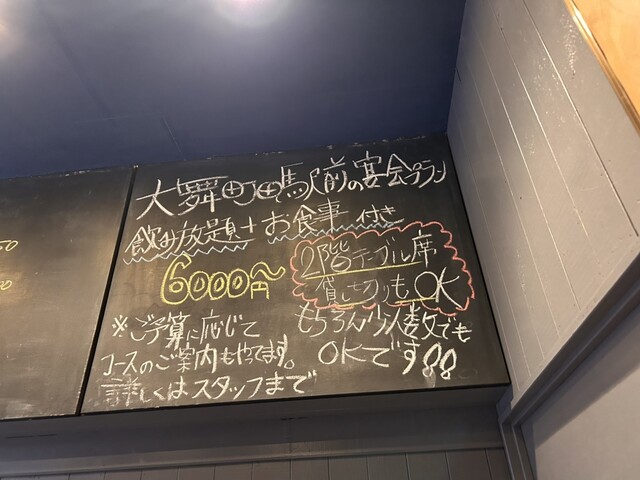 大舞町田駅前の宴会プラン
飲み放題+お食事付き
6000円〜
2階テーブル席
貸し切りもOK
もちろん少人数でも
OKです!!
※ご予算に応じて
コースのご案内もやってます。
詳しくはスタッフまで